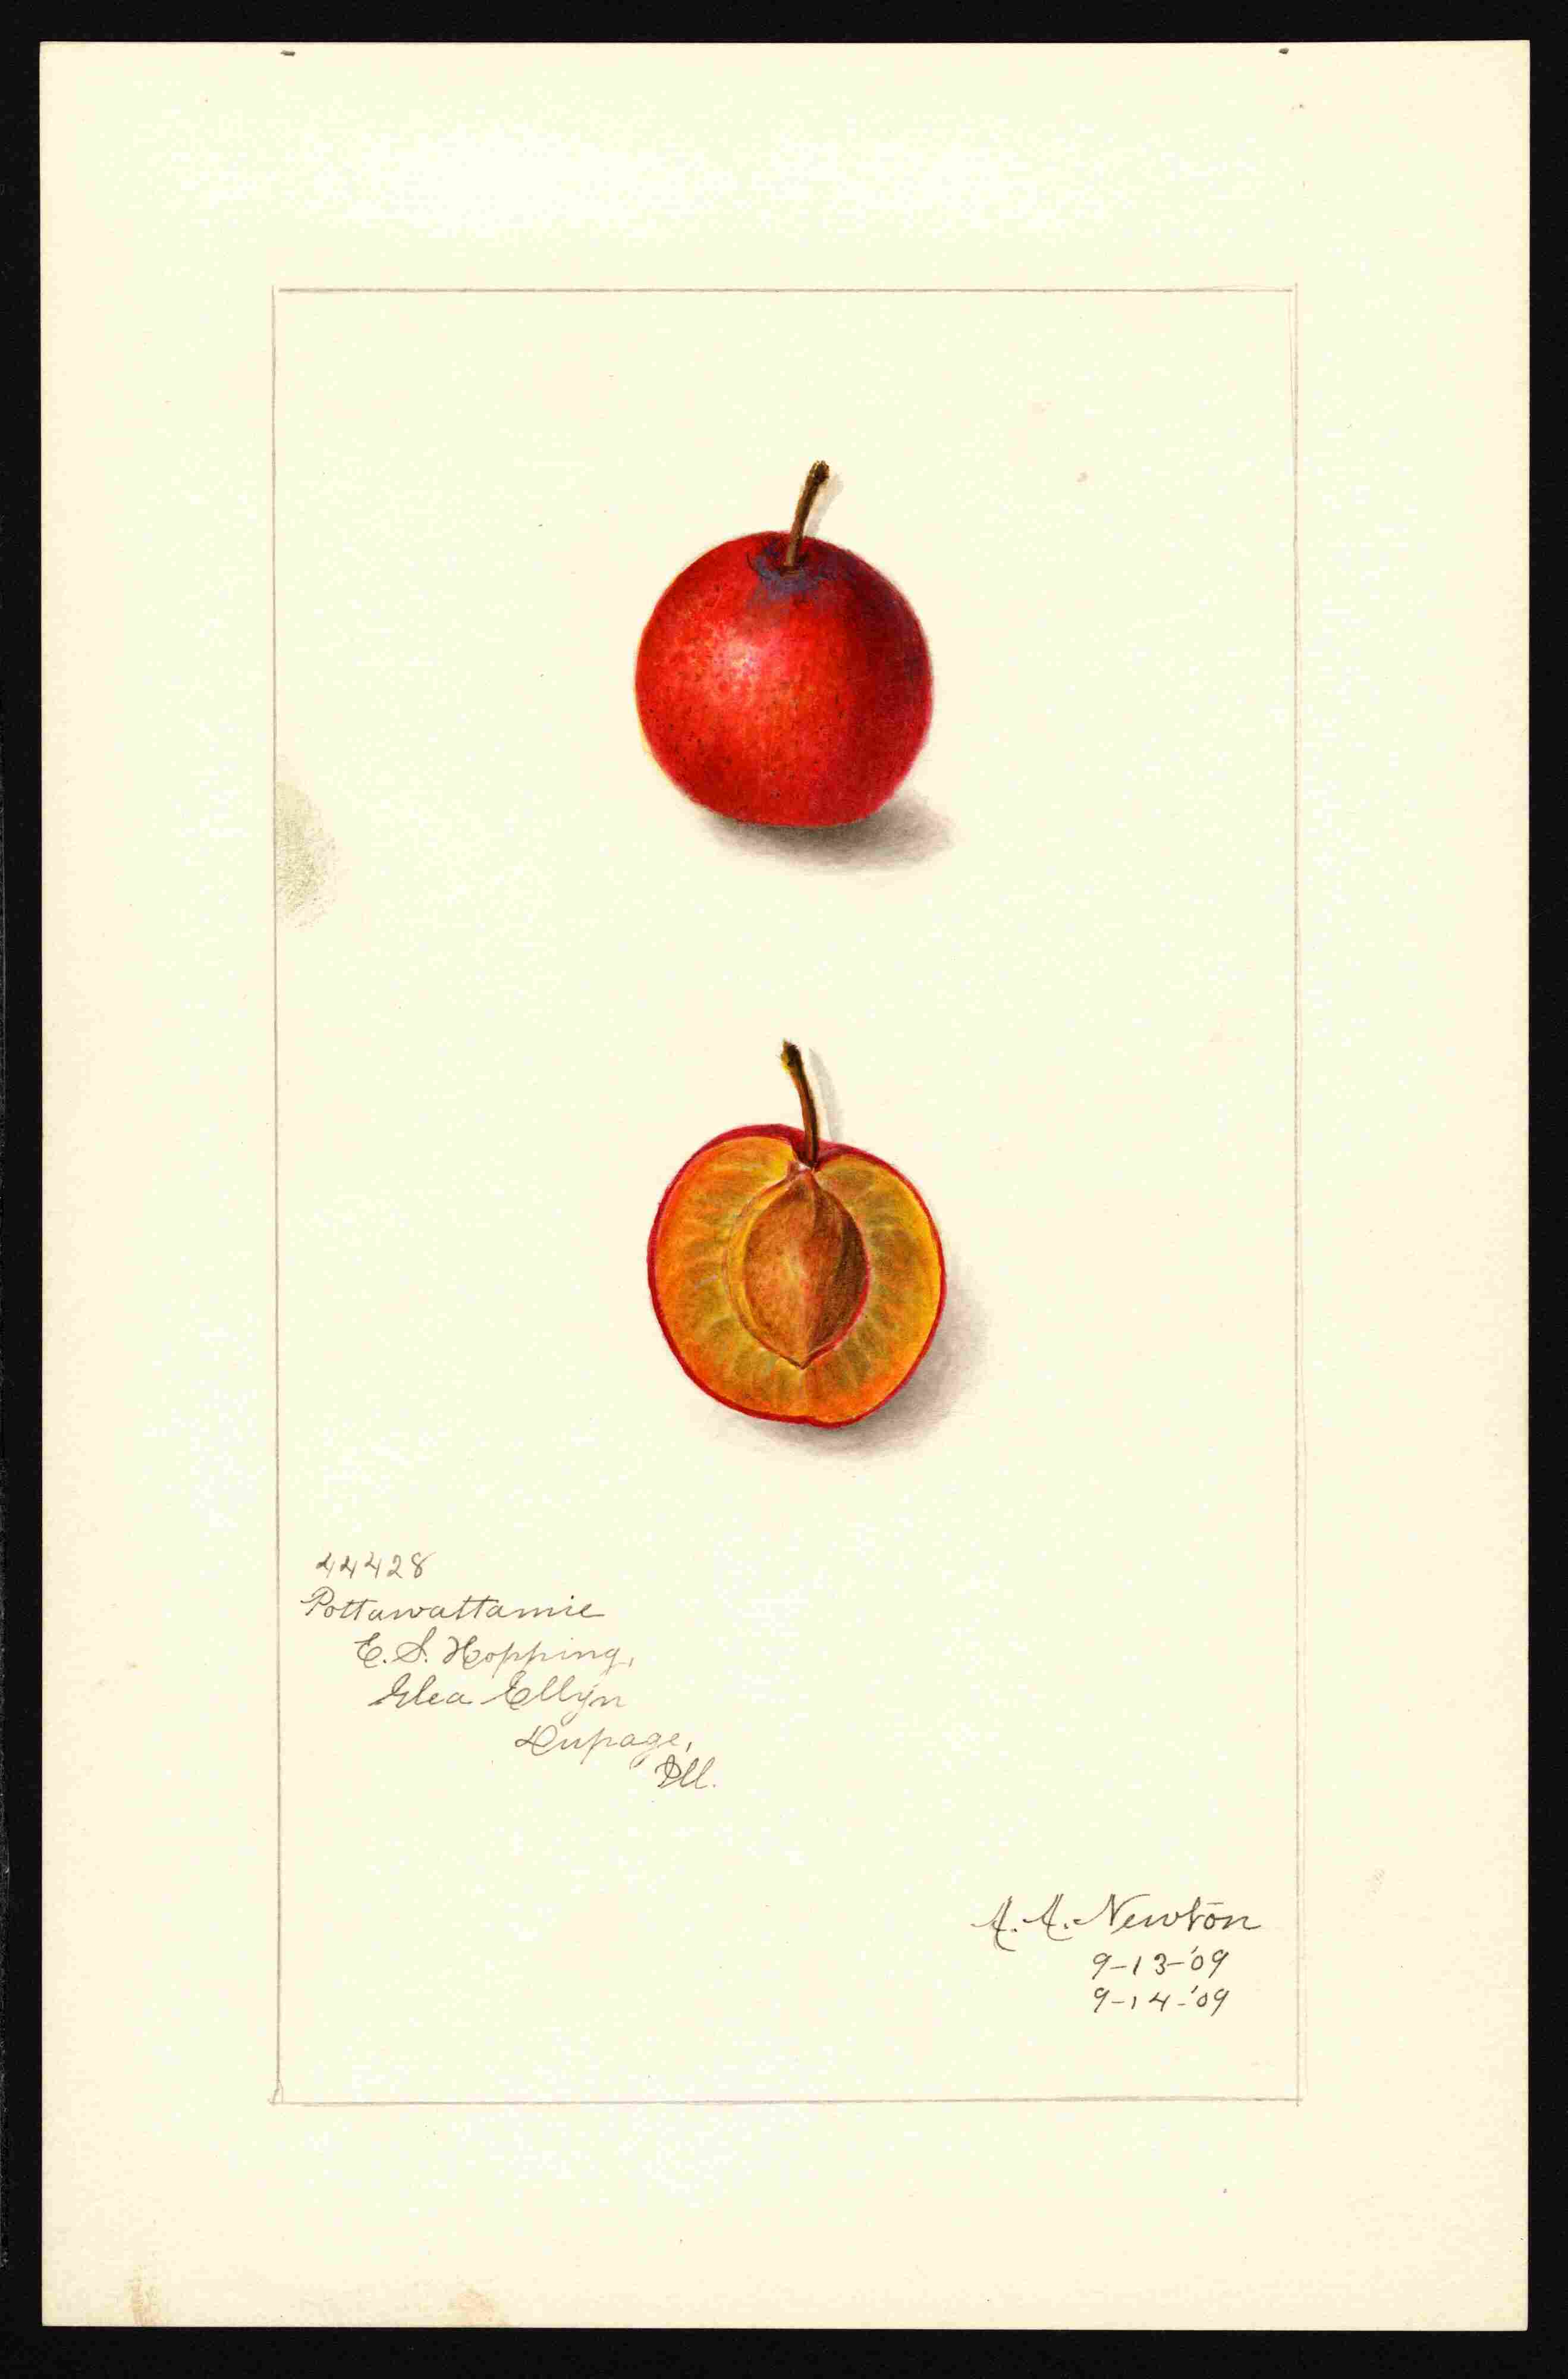 44428
Pottawattamie
E. S. Hopping,
Glen Ellyn
Dupage,
Ill.
A. A. Newton
9-13-'09
9-14-'09